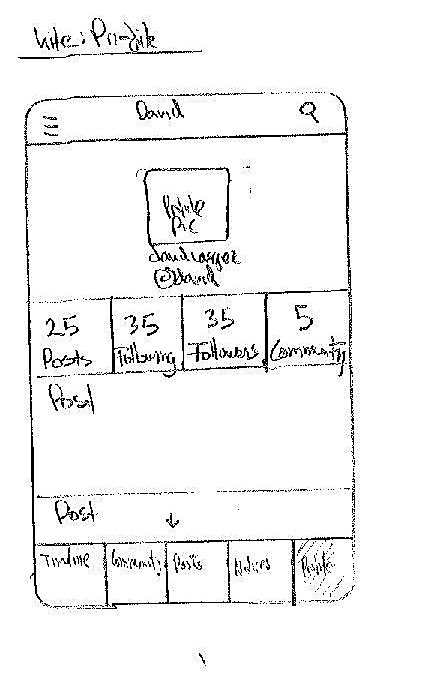 Profile
David
Profile
Pic
@David
25 35 35 5
Posts Following Followers Community
Post
Post
Timeline Community Posts Notices Profile